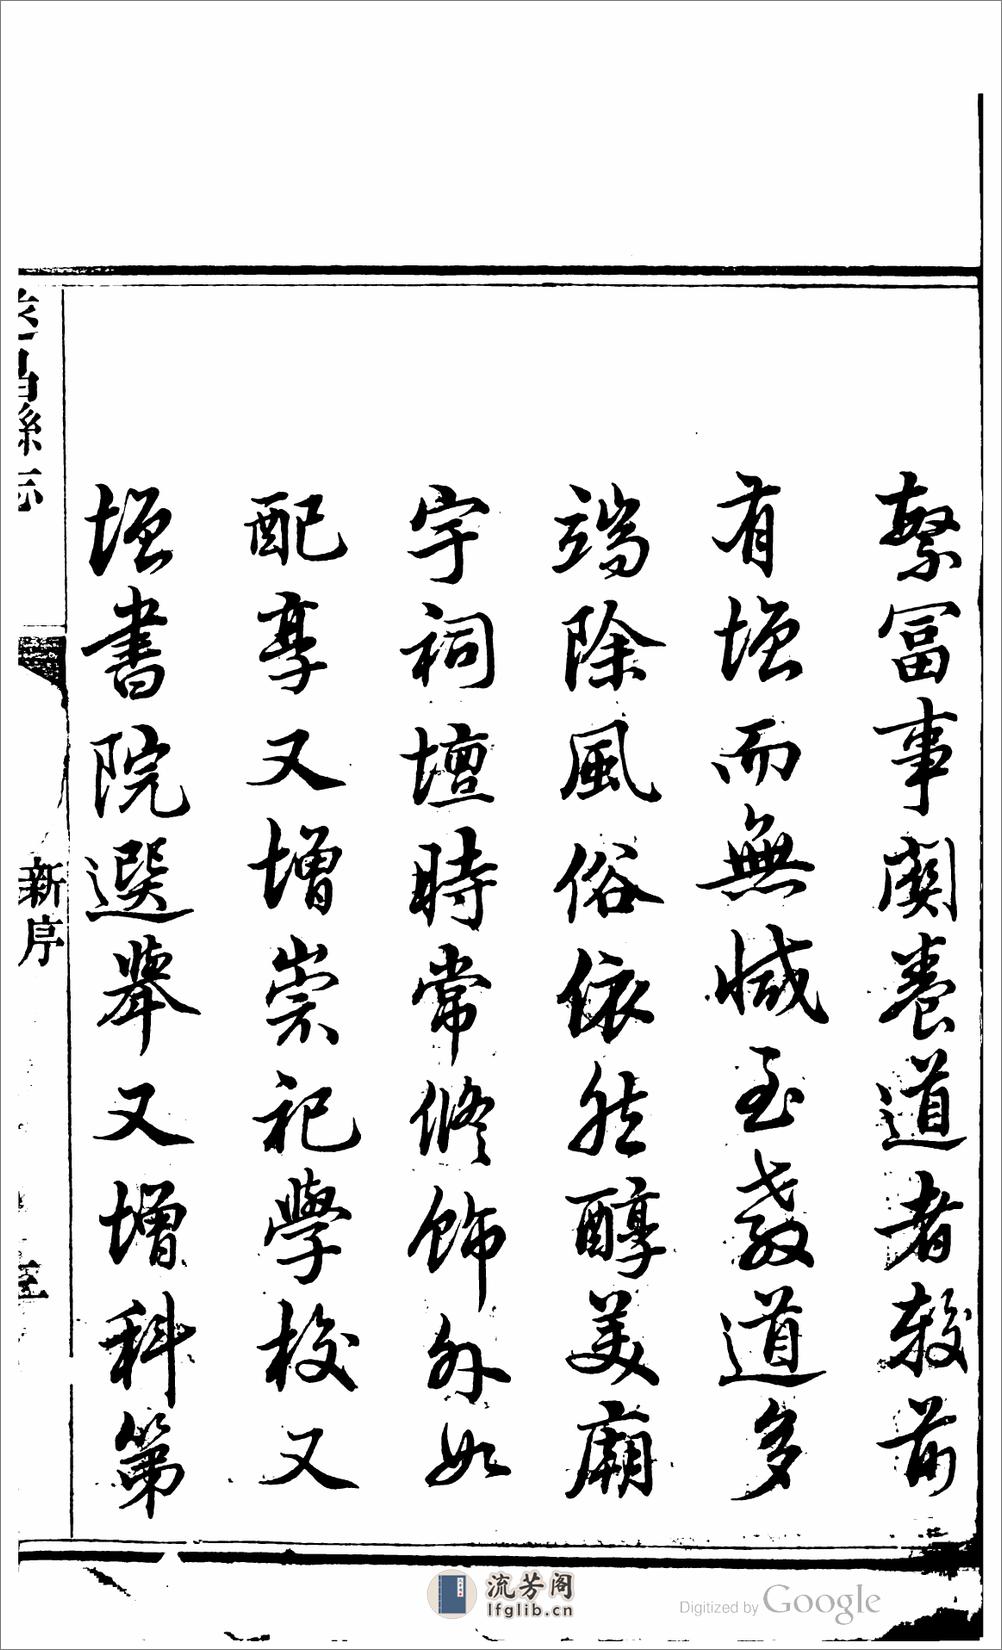 繁冨事関養道者較前
有增而無減至教道多
端除風俗依然醇美廟
宇祠壇時常修飾外如
配享又增崇祀學校又
增書院選舉又增科第
縣志
新序
流芳阁
lfglib.cn
Digitized by Google